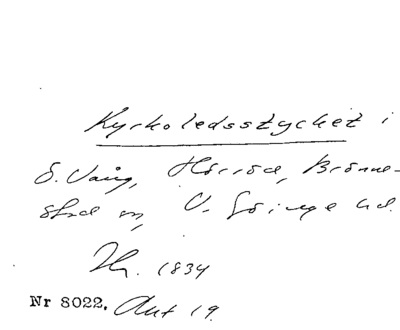 Kyrkoledsstycket i
S. Vång, Hörröd, Brönne-
stad m, V. Göinge hd.
Th. 1834
Nr 8022. Aut 19.